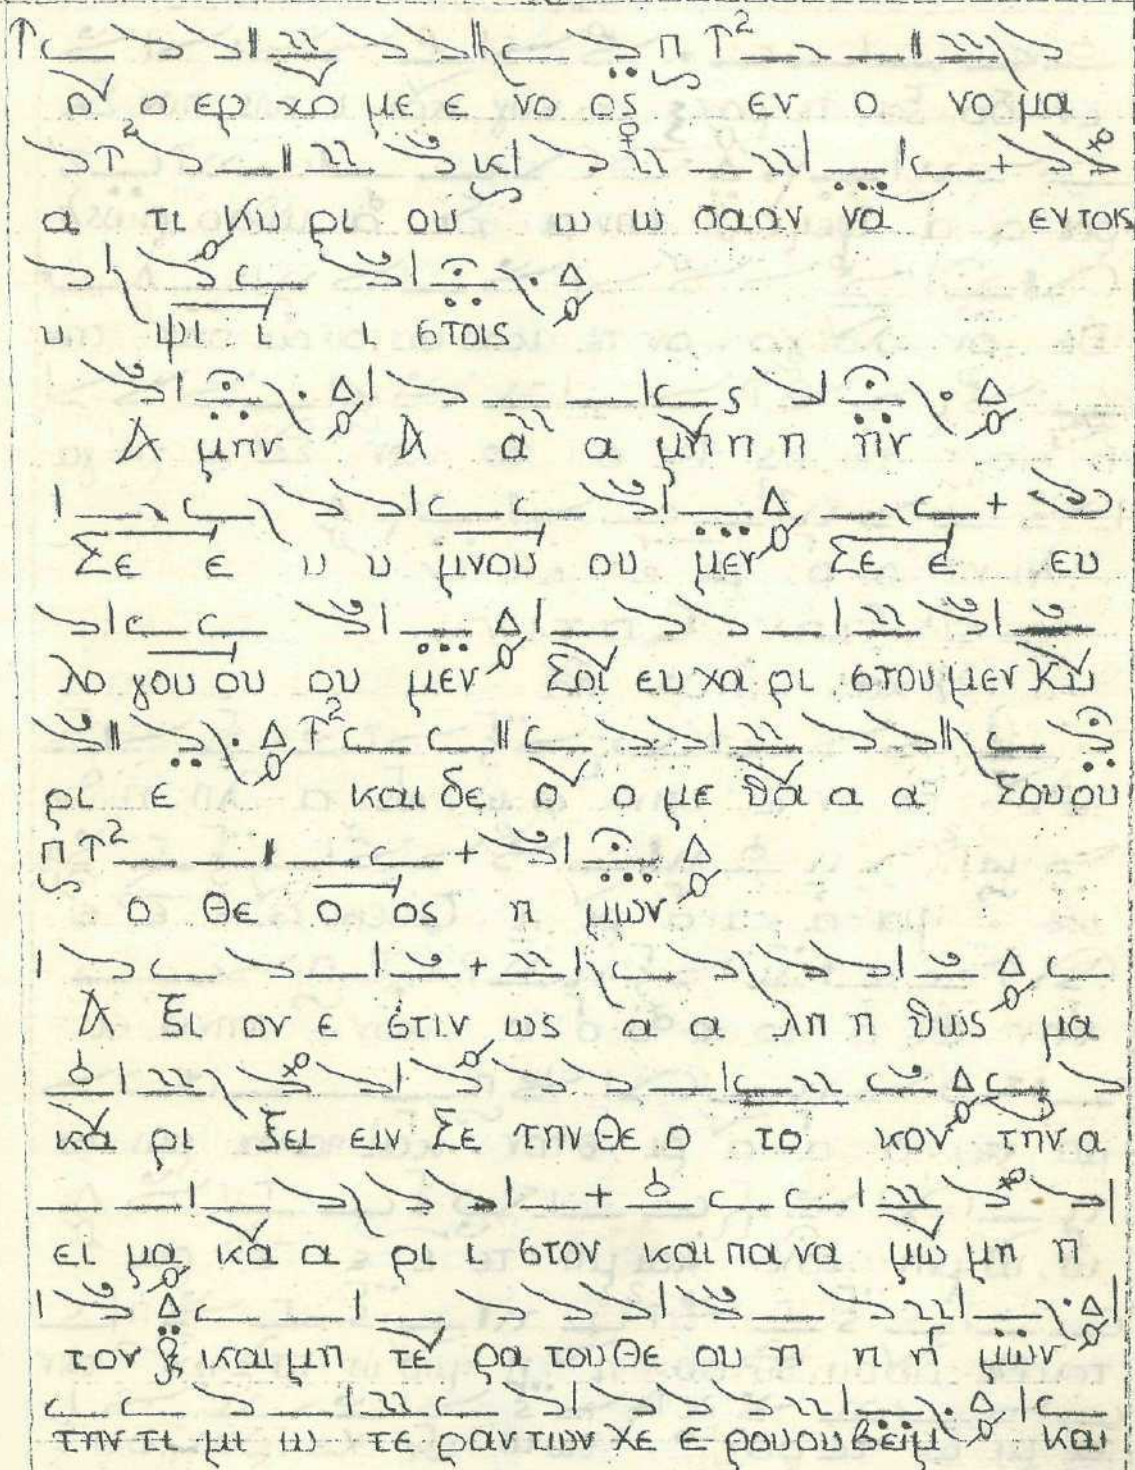 ο ο ερ χο με ε νο ος εν ο νο μα
α τι Κυ ρι ου ω ω σααν να εν τοις
υ ψι ι ι στοις
Α μην Α α α μη η η ην
Σε ε υ υ μνου ου μεν Σε ε ευ
λο γου ου ου μεν Σοι ευ χα ρι στου μεν Κυ
ρι ε και δε ο ο με θα α α Σου ου
ο Θε ο ος η μων
Α ξι ον ε στιν ως α α λη η θως μα
κα ρι ζει ειν Σε την Θε ο το κον την α
ει μα κα α ρι ι στον και πα να μω μη η
τον και μη τε ρα του Θε ου η η η μων
την τι μι ω τε ραν των χε ε ρου ου βειμ και